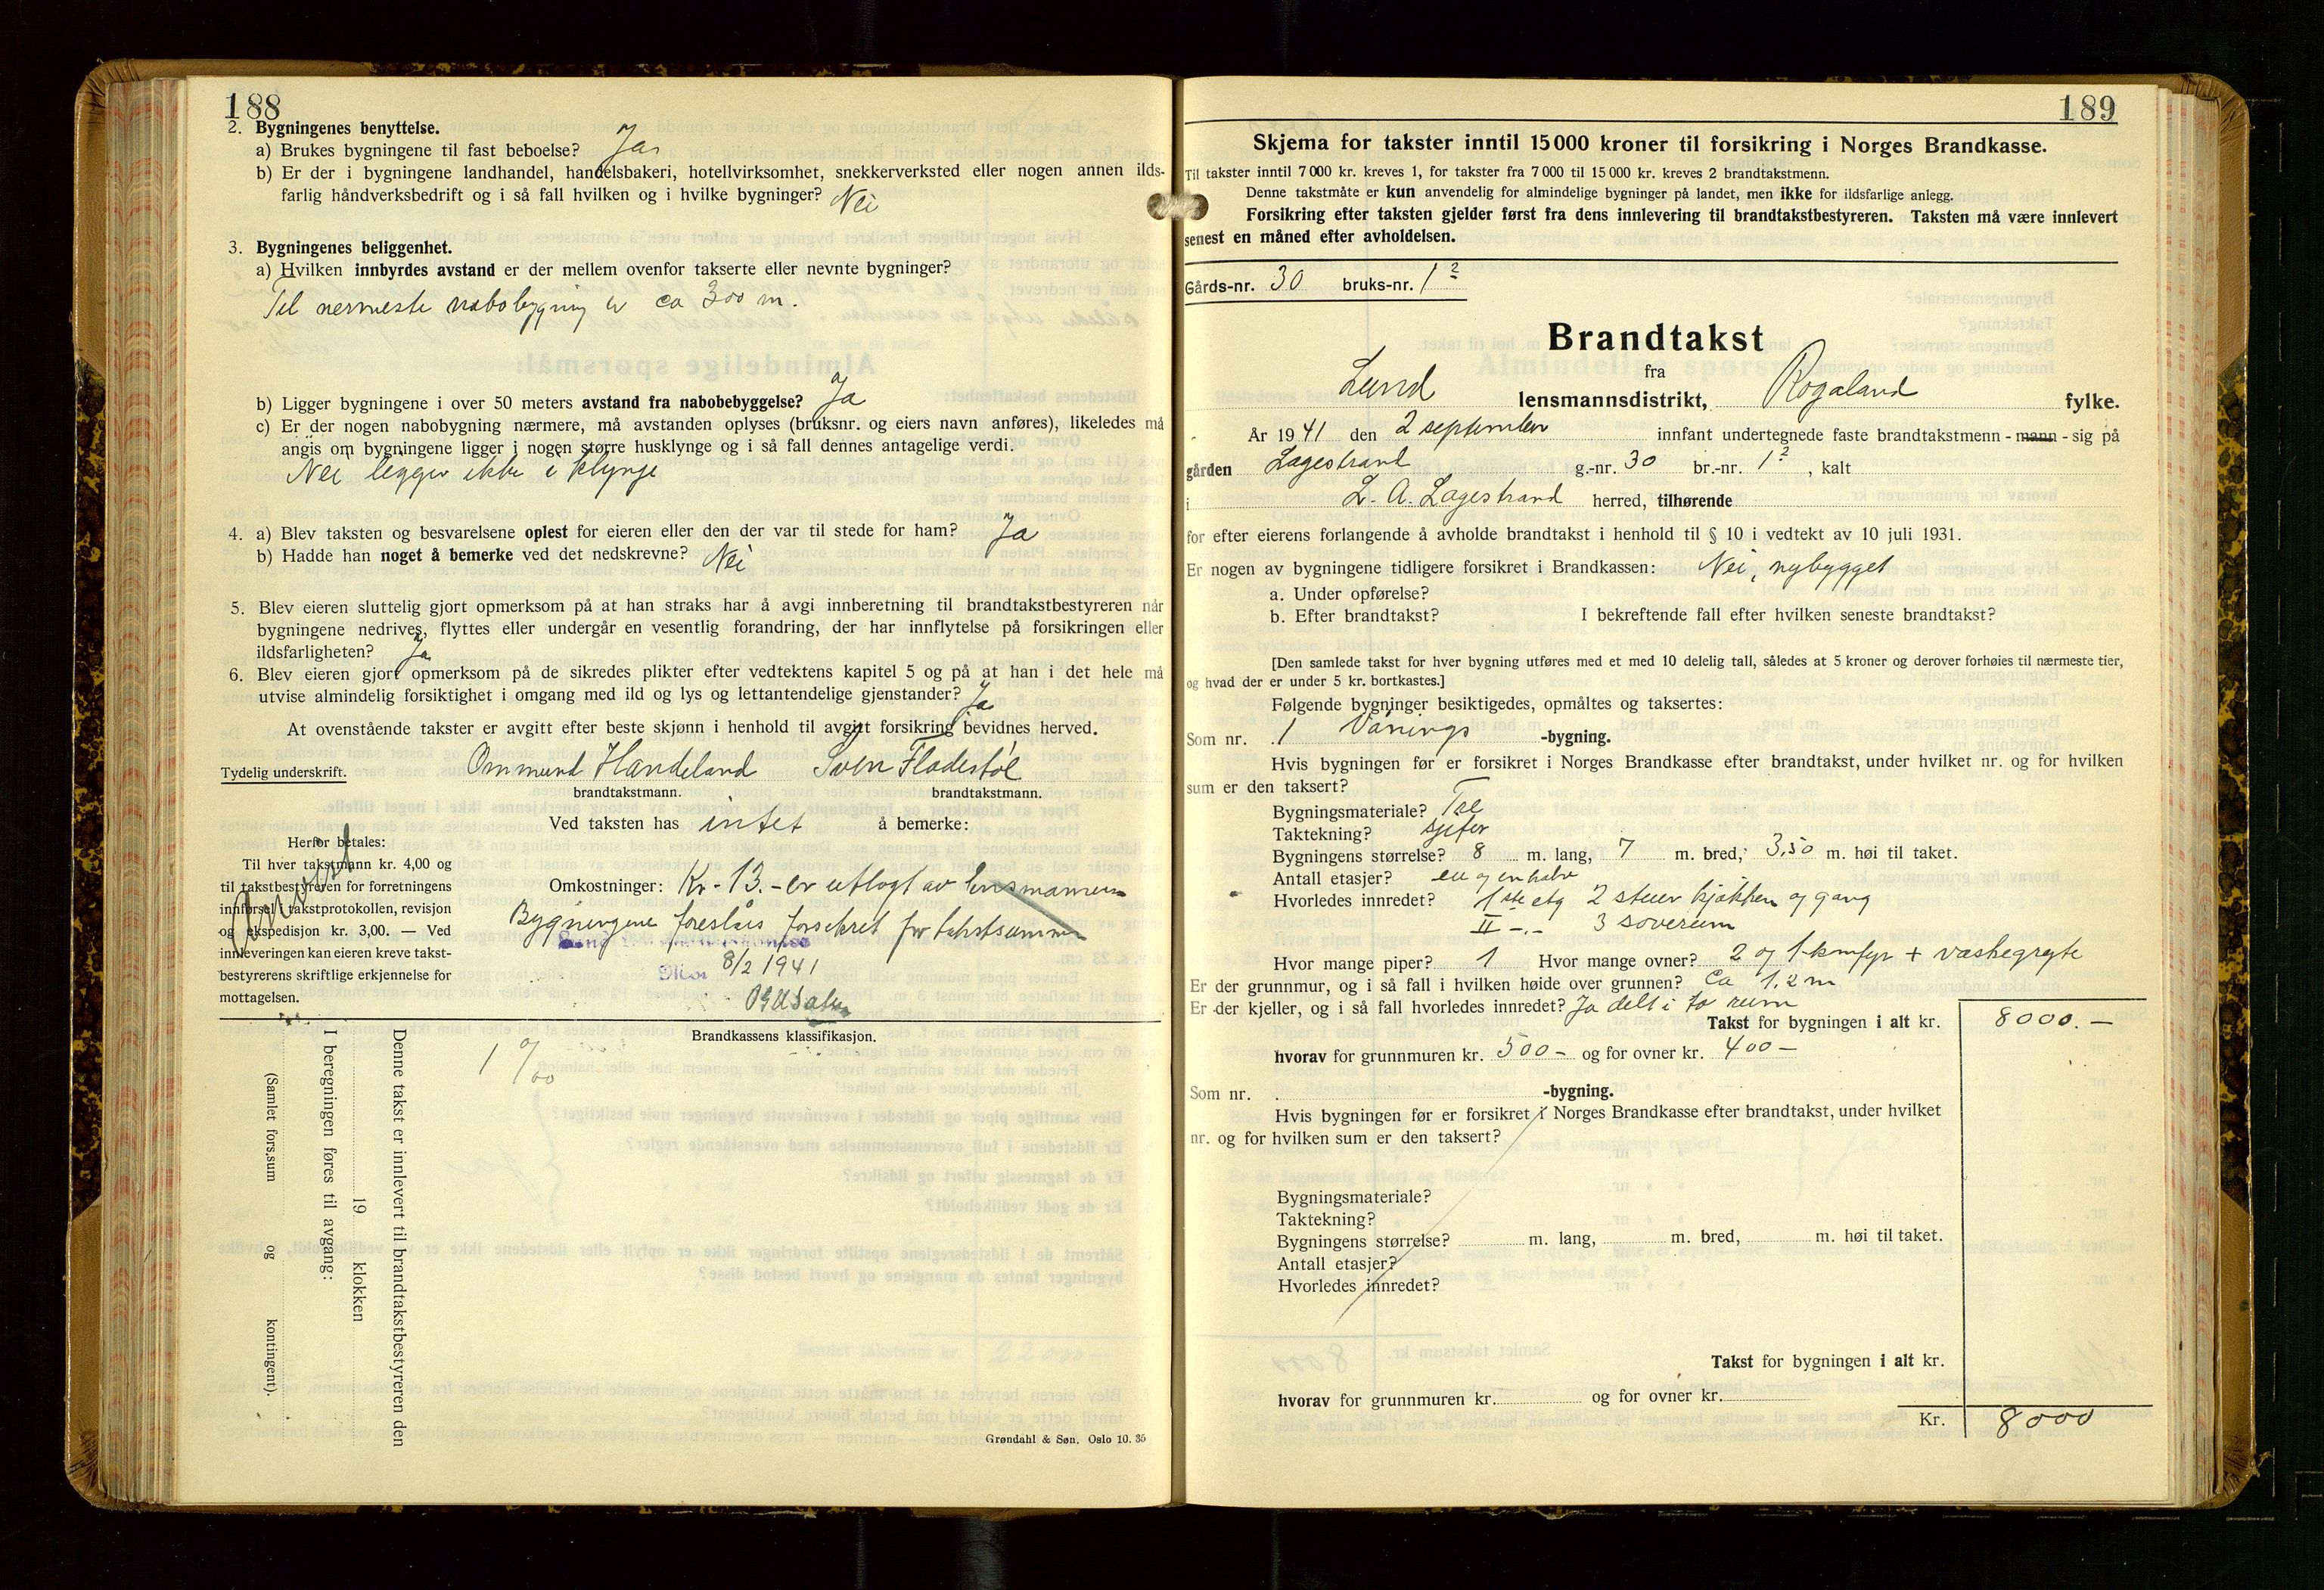 188
2. Bygningenes benyttelse.
a) Brukes bygningene til fast beboelse? Ja
b) Er der i bygningene landhandel, handelsbakeri, hotellvirksomhet, snekkerverksted eller nogen annen ilds-
farlig håndverksbedrift og i så fall hvilken og i hvilke bygninger? Nei
3. Bygningenes beliggenhet.
a) Hvilken innbyrdes avstand er der mellem ovenfor takserte eller nevnte bygninger?
Til nermeste nabobygning er ca 300 m.
b) Ligger bygningene i over 50 meters avstand fra nabobebyggelse? Ja
c) Er der nogen nabobygning nærmere, må avstanden oplyses (bruksnr. og eiers navn anføres), likeledes må
angis om bygningene ligger i nogen større husklynge og i så fall dennes antagelige verdi.
Nei ligger ikke i klynge
4. a) Blev taksten og besvarelsene oplest for eieren eller den der var til stede for ham? Ja
b) Hadde han noget å bemerke ved det nedskrevne? Nei
5. Blev eieren sluttelig gjort opmerksom på at han straks har å avgi innberetning til brandtakstbestyreren når
bygningene nedrives, flyttes eller undergår en vesentlig forandring, der har innflytelse på forsikringen eller
ildsfarligheten? Ja
6. Blev eieren gjort opmerksom på de sikredes plikter efter vedtektens kapitel 5 og på at han i det hele må
utvise almindelig forsiktighet i omgang med ild og lys og lettantendelige gjenstander? Ja
At ovenstående takster er avgitt efter beste skjønn i henhold til avgitt forsikring bevidnes herved.
Tydelig underskrift. Ommund Handeland Sven Fladestøl
brandtakstmann. brandtakstmann.
Ved taksten has intet å bemerke:
Herfor betales:
Til hver takstmann kr. 4,00 og
til takstbestyreren for forretningens
innførsel i takstprotokollen, revisjon
og ekspedisjon kr. 3,00. — Ved
innleveringen kan eieren kreve takst-
bestyrerens skriftlige erkjennelse for
mottagelsen.
Omkostninger: Kr - 13.- er utlagt av lensmannen
Bygningene foreslås forsikret for takstsummen
8/2 1941
Brandkassens klassifikasjon.
1 0/00
Denne takst er innlevert til brandtakstbestyreren den
19 klokken
I beregningen føres til avgang:
(Samlet fors.sum og kontingent).
Grøndahl & Søn, Oslo 10. 35
189
Skjema for takster inntil 15 000 kroner til forsikring i Norges Brandkasse.
Til takster inntil 7 000 kr. kreves 1, for takster fra 7 000 til 15 000 kr. kreves 2 brandtakstmenn.
Denne takstmåte er kun anvendelig for almindelige bygninger på landet, men ikke for ildsfarlige anlegg.
Forsikring efter taksten gjelder først fra dens innlevering til brandtakstbestyreren. Taksten må være innlevert
senest en måned efter avholdelsen.
Gårds-nr. 30 bruks-nr. 1 2
Brandtakst
fra
Lund lensmannsdistrikt, Rogaland fylke.
År 1941 den 2 september innfant undertegnede faste brandtakstmenn - mann - sig på
gården Lagestrand g.-nr. 30 br.-nr. 1 2, kalt
i L. A. Lagestrand herred, tilhørende
for efter eierens forlangende å avholde brandtakst i henhold til § 10 i vedtekt av 10 juli 1931.
Er nogen av bygningene tidligere forsikret i Brandkassen: Nei, nybygget
a. Under opførelse?
b. Efter brandtakst? I bekreftende fall efter hvilken seneste brandtakst?
[Den samlede takst for hver bygning utføres med et med 10 delelig tall, således at 5 kroner og derover forhøies til nærmeste tier,
og hvad der er under 5 kr. bortkastes.]
Følgende bygninger besiktigedes, opmåltes og taksertes:
Som nr. 1 Vånings -bygning.
Hvis bygningen før er forsikret i Norges Brandkasse efter brandtakst, under hvilket nr. og for hvilken
sum er den taksert?
Bygningsmateriale? Tre
Taktekning? sjefer
Bygningens størrelse? 8 m. lang, 7 m. bred, 3,50 m. høi til taket.
Antall etasjer? en og en halv
Hvorledes innredet? 1ste etg 2 stuer kjøkken og gang
II -.- 3 soverum
Hvor mange piper? 1 Hvor mange ovner? 2 og 1 komfyr + vaskegryte
Er der grunnmur, og i så fall i hvilken høide over grunnen? Ca 1,2 m
Er der kjeller, og i så fall hvorledes innredet? Ja delt i to rum
Takst for bygningen i alt kr. 8000.—
hvorav for grunnmuren kr. 500 - og for ovner kr. 400 -
Som nr. -bygning.
Hvis bygningen før er forsikret i Norges Brandkasse efter brandtakst, under hvilket
nr. og for hvilken sum er den taksert?
Bygningsmateriale?
Taktekning?
Bygningens størrelse? m. lang, m. bred, m. høi til taket.
Antall etasjer?
Hvorledes innredet?
Takst for bygningen i alt kr.
hvorav for grunnmuren kr. og for ovner kr.
Kr. 8000